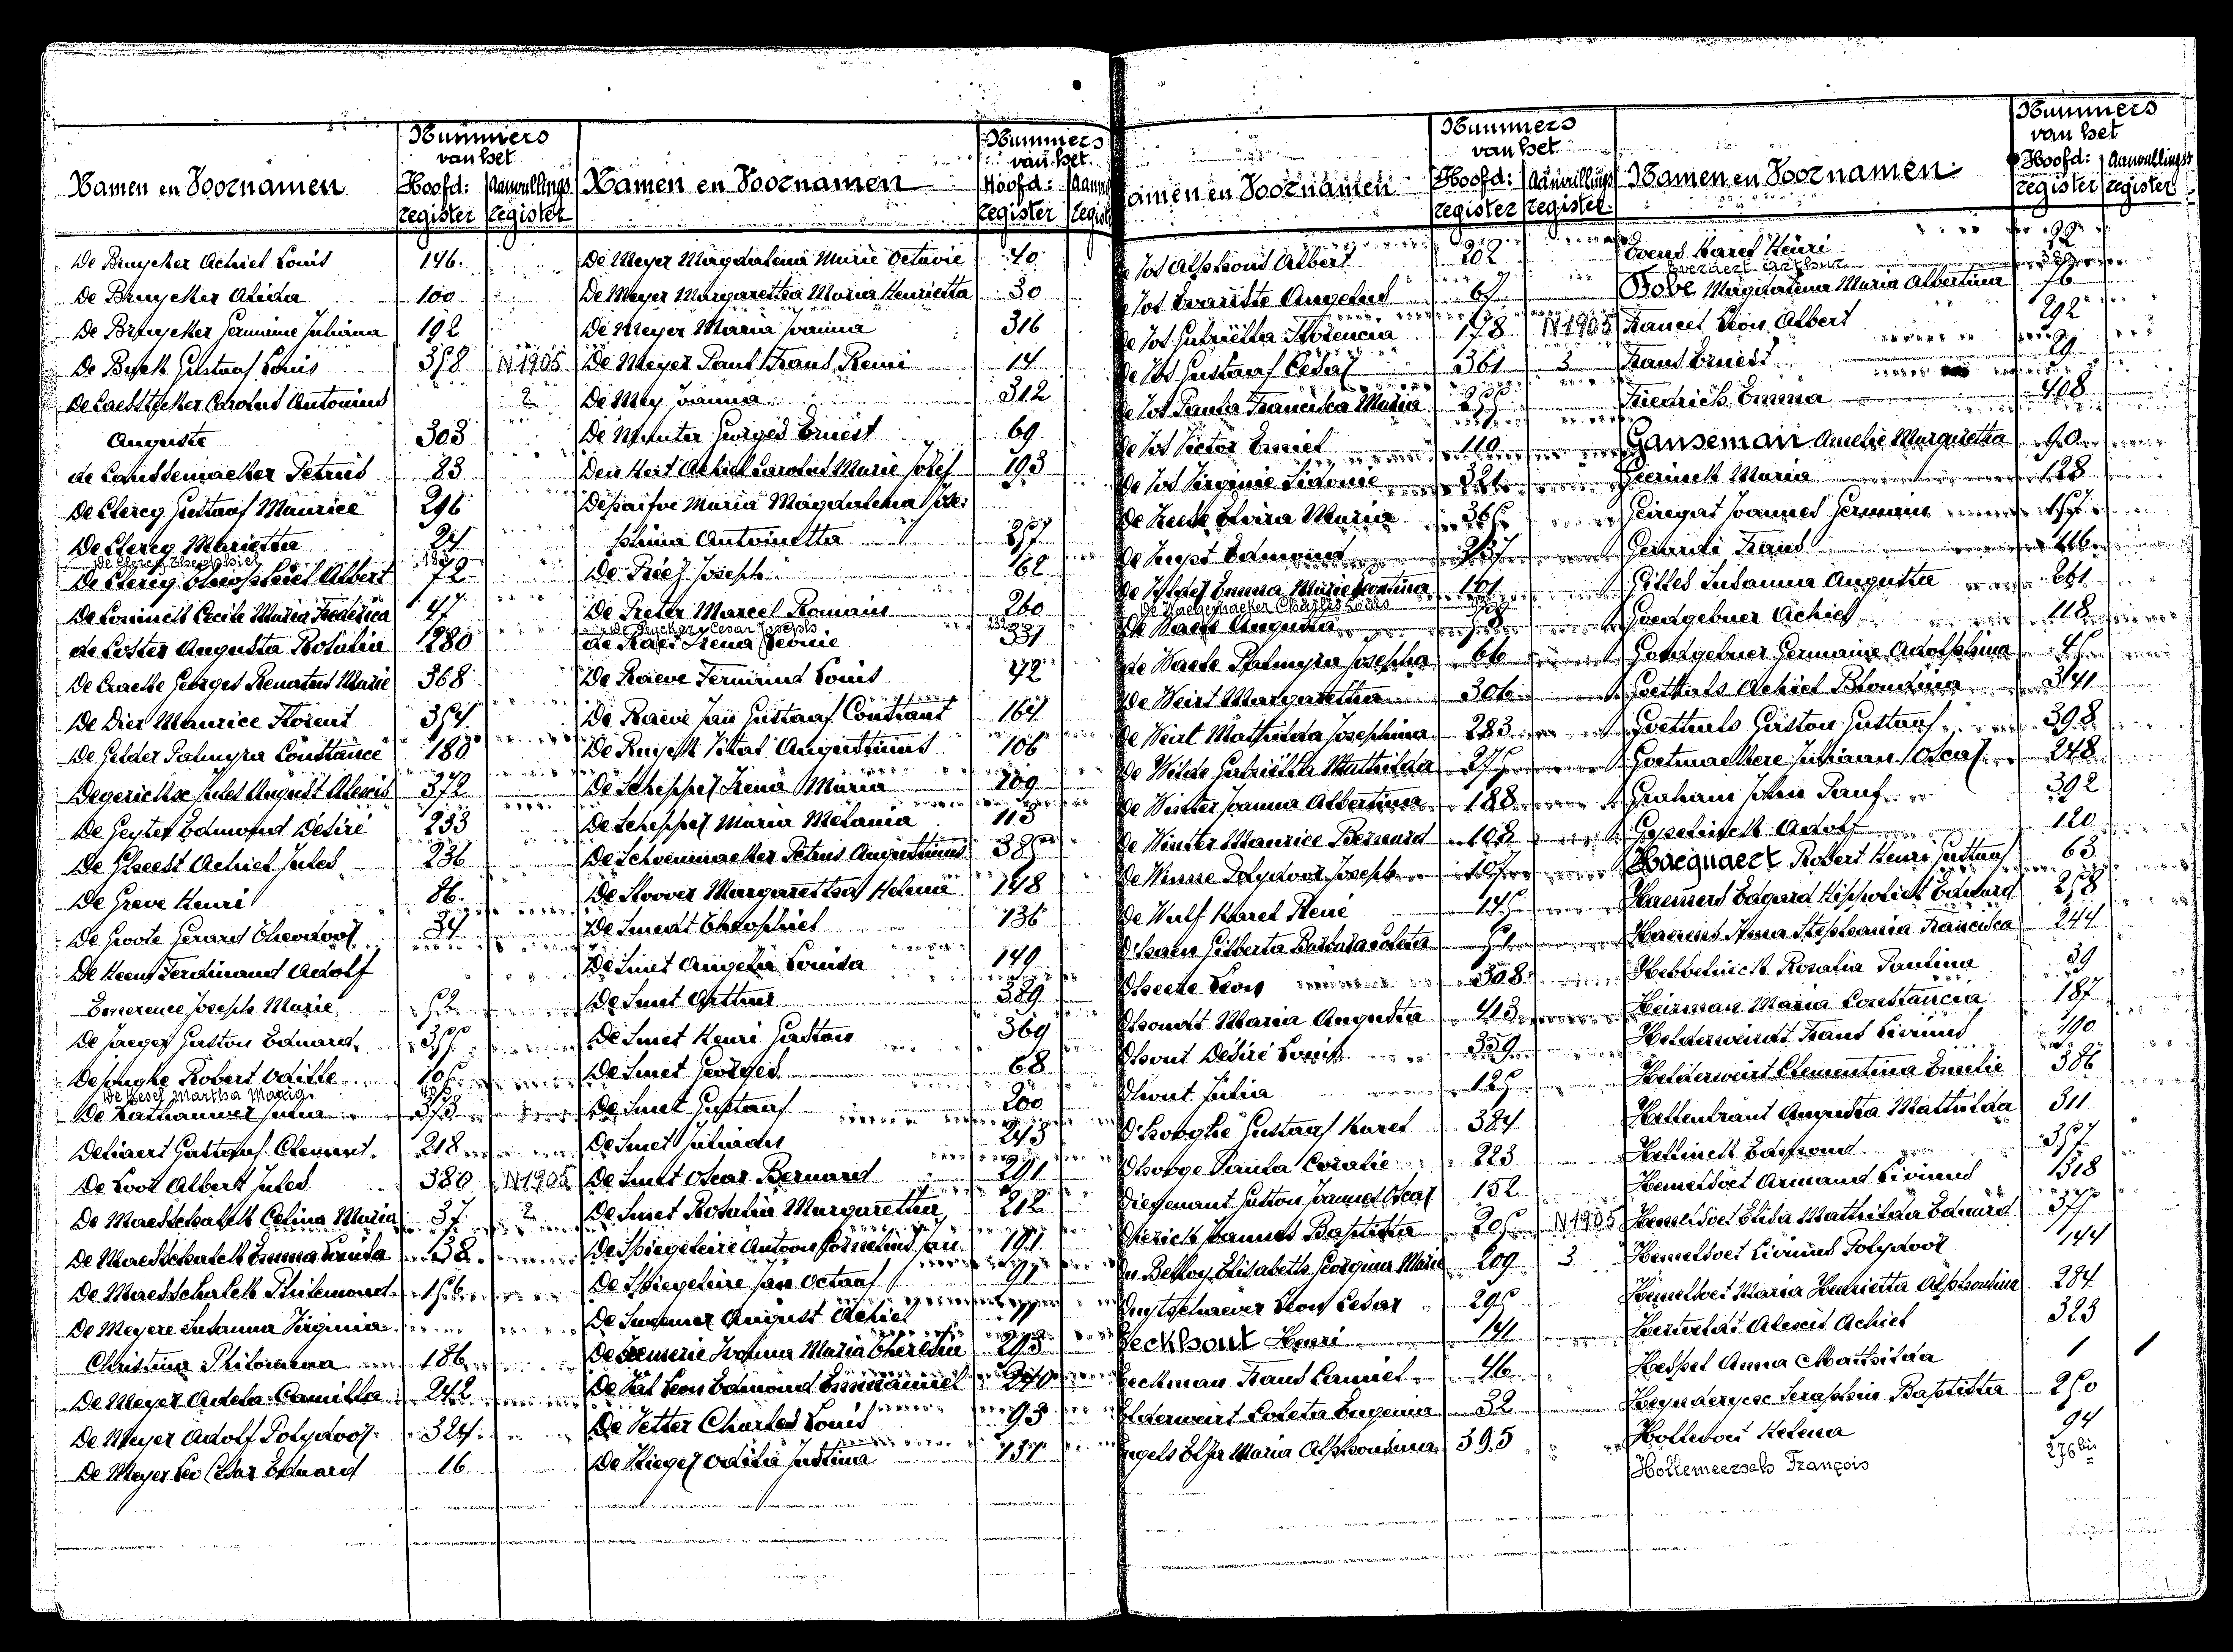 Nummers
van het
Namen en Voornamen Hoofd: Aanvullings
register register
De Bruycker Achiel Louis 146
De Bruycker Alida 100
De Bruycker Germaine Juliana 192
De Buck Gustaaf Louis 378 N 1905
De Caesstecker Carolus Antonius 2
Auguste 303
de Causemaeker Petrus 83
De Clercq Gustaaf Maurice 296
De Clercq Marietta
De Clercq Theophiel
De Clercq Theophiel Albert 72
De Coninck Cecile Maria Frederica 47
de Coster Augusta Rosalia 1280
De Craecke Georges Renatus Marie 368
De Dier Maurice Florent 354
De Gelder Palmyra Constance 180
Degerickx Jules August Alexis 372
De Geyter Edmond Désiré 233
De Gheest Achiel Jules 236
De Greve Henri 86
De Groote Gerard Theodoor 34
De Keen Ferdinand Adolf
Emerence Joseph Marie 52
De Jaeger Gaston Eduard 355
De Jonghe Robert Odille 105
De Kesel Martha Maria
De Kathauwer Julia 353
Deliaert Gustaaf Clement 218
De Loor Albert Jules 380 N 1905
De Maesschalck Celina Maria 37 2
De Maesschalck Emma Louisa 38
De Maesschalck Philemond 156
De Meyere Susanna Virginia
Christina Philomena 186
De Meyer Adela Camilla 242
De Meyer Adolf Polydoor 324
De Meyer Leo Cesar Eduard 16
Nummers
van het
Namen en Voornamen Hoofd:
register
De Meyer Magdalena Marie Octavie 40
De Meyer Margaretha Maria Henrietta 30
De Meyer Maria Joanna 316
De Meyer Paul Frans Remi 14
De Mey Joanna 312
De Munter Georges Ernest 69
Den Hert Achiel Carolus Marie Jozef 193
Depaifve Maria Magdalena Jose:
phina Antoinetta 257
De Preez Joseph 162
De Preter Marcel Romain 260
De Rycker Cesar Joseph 232
de Raes Irena Leonie 331
De Raeve Fernand Louis 42
De Raeve Jan Gustaaf Constant 164
De Ruyck Vital Augustinus 106
De Schepper Irena Maria 109
De Schepper Maria Melania 113
De Schoenmaeker Petrus Augustinus 385
De Sloover Margaretha Helena 148
De Smedt Theophiel 136
De Smet Angela Louisa 149
De Smet Arthur 389
De Smet Henri Gaston 369
De Smet Georges 68
De Smet Gustaaf 200
De Smet Juliaan 243
De Smet Oscar Bernard 291
De Smet Rosalia Margaretha 212
De Spiegeleire Antoon Cornelius Jan 191
De Spiegeleire Jan Octaaf 91
De Swemer August Achiel 11
De Temmerie Ivonna Maria Theresia 293
De Vat Leon Edmond Emmanuel 240
De Vetter Charles Louis 93
De Vlieger Odilia Justina 131
Nummers
van het
Namen en Voornamen Hoofd: Aanvullings
register register
De Vos Alphons Albert 202
De Vos Evariste Angelus 67
De Vos Gabriëlla Florencia 178 N 1905
De Vos Gustaaf Cesar 361 3
De Vos Paula Francisca Maria 255
De Vos Victor Emiel 110
De Vos Virginie Sidonie 321
De Vreese Elvira Maria 365
De Vuyst Edmond 237
De Vylder Emma Marie Leontina 101
De Waegemaeker Charles Louis
De Waele Augusta
de Waele Palmyra Josepha 66
De Weirt Margaretha 306
De Weirt Mathilda Josephina 283
De Wilde Gabriëlla Mathilda 275
De Winter Joanna Albertina 188
De Winter Maurice Bernard 108
De Winne Polydoor Joseph 107
De Wulf Karel René 145
D'haen Gilberta Barbara Coleta 51
Dheere Leon 308
Dhondt Maria Augusta 413
Dhont Désiré Louis 339
Dhont Julia 125
D'hooghe Gustaaf Karel 384
Dhooge Paula Coralie 223
Diegenant Gaston Joannes Oscar 152
Dierick Joannes Baptista 205 N 1905
Du Belloy Elisabeth Georgina Marie 209 3
Duytschaever Leon Cesar 295
Eeckhout Henri 141
Eeckman Frans Camiel 46
Elderweirt Coleta Eugenia 32
Engels Elza Maria Alphonsina 395
Nummers
van het
Namen en Voornamen Hoofd: Aanvullings
register register
Evens Karel Henri 99
Everaert Arthur 329
Fobe Magdalena Maria Albertina 76
Francet Léon Albert 292
Frans Ernest 29
Friedrich Emma 408
Ganseman Amelie Margaretha 90
Geerinck Maria 128
Geiregat Joannes Germain 157
Gerardi Frans 416
Gilles Susanna Augusta 261
Goedgebuer Achiel 118
Goedgebuer Germaine Adolphina 45
Goethals Achiel Blondina 341
Goethals Gaston Gustaaf 398
Goetmaeckere Juliaan Oscar 248
Graham John Paul 392
Gyselinck Adolf 120
Hacquaert Robert Henri Gustaaf 63
Haemers Edgard Hippoliet Eduard 258
Haerens Irma Stephania Francisca 244
Hebbelinck Rosalia Paulina 39
Heirman Maria Constancia 187
Helderweirdt Frans Livinus 190
Helderweirt Clementina Emilie 386
Hellebrant Augusta Mathilda 311
Hellinck Edmond 357
Hemelsoet Armand Livinus 1318
Hemelsoet Elisa Mathilda Eduard 375
Hemelsoet Livinus Polydoor 144
Hemelsoet Maria Henrietta Alphonsina 284
Hertveldt Alexis Achiel 323
Hespel Anna Mathilda 1 1
Heynderycx Seraphin Baptista 250
Hollevoet Helena 94
Hollemeersch François 276 bis